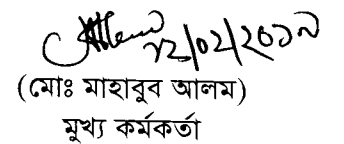 ১২/০২/২০১৯
(মোঃ মাহাবুব আলম)
মুখ্য কর্মকর্তা